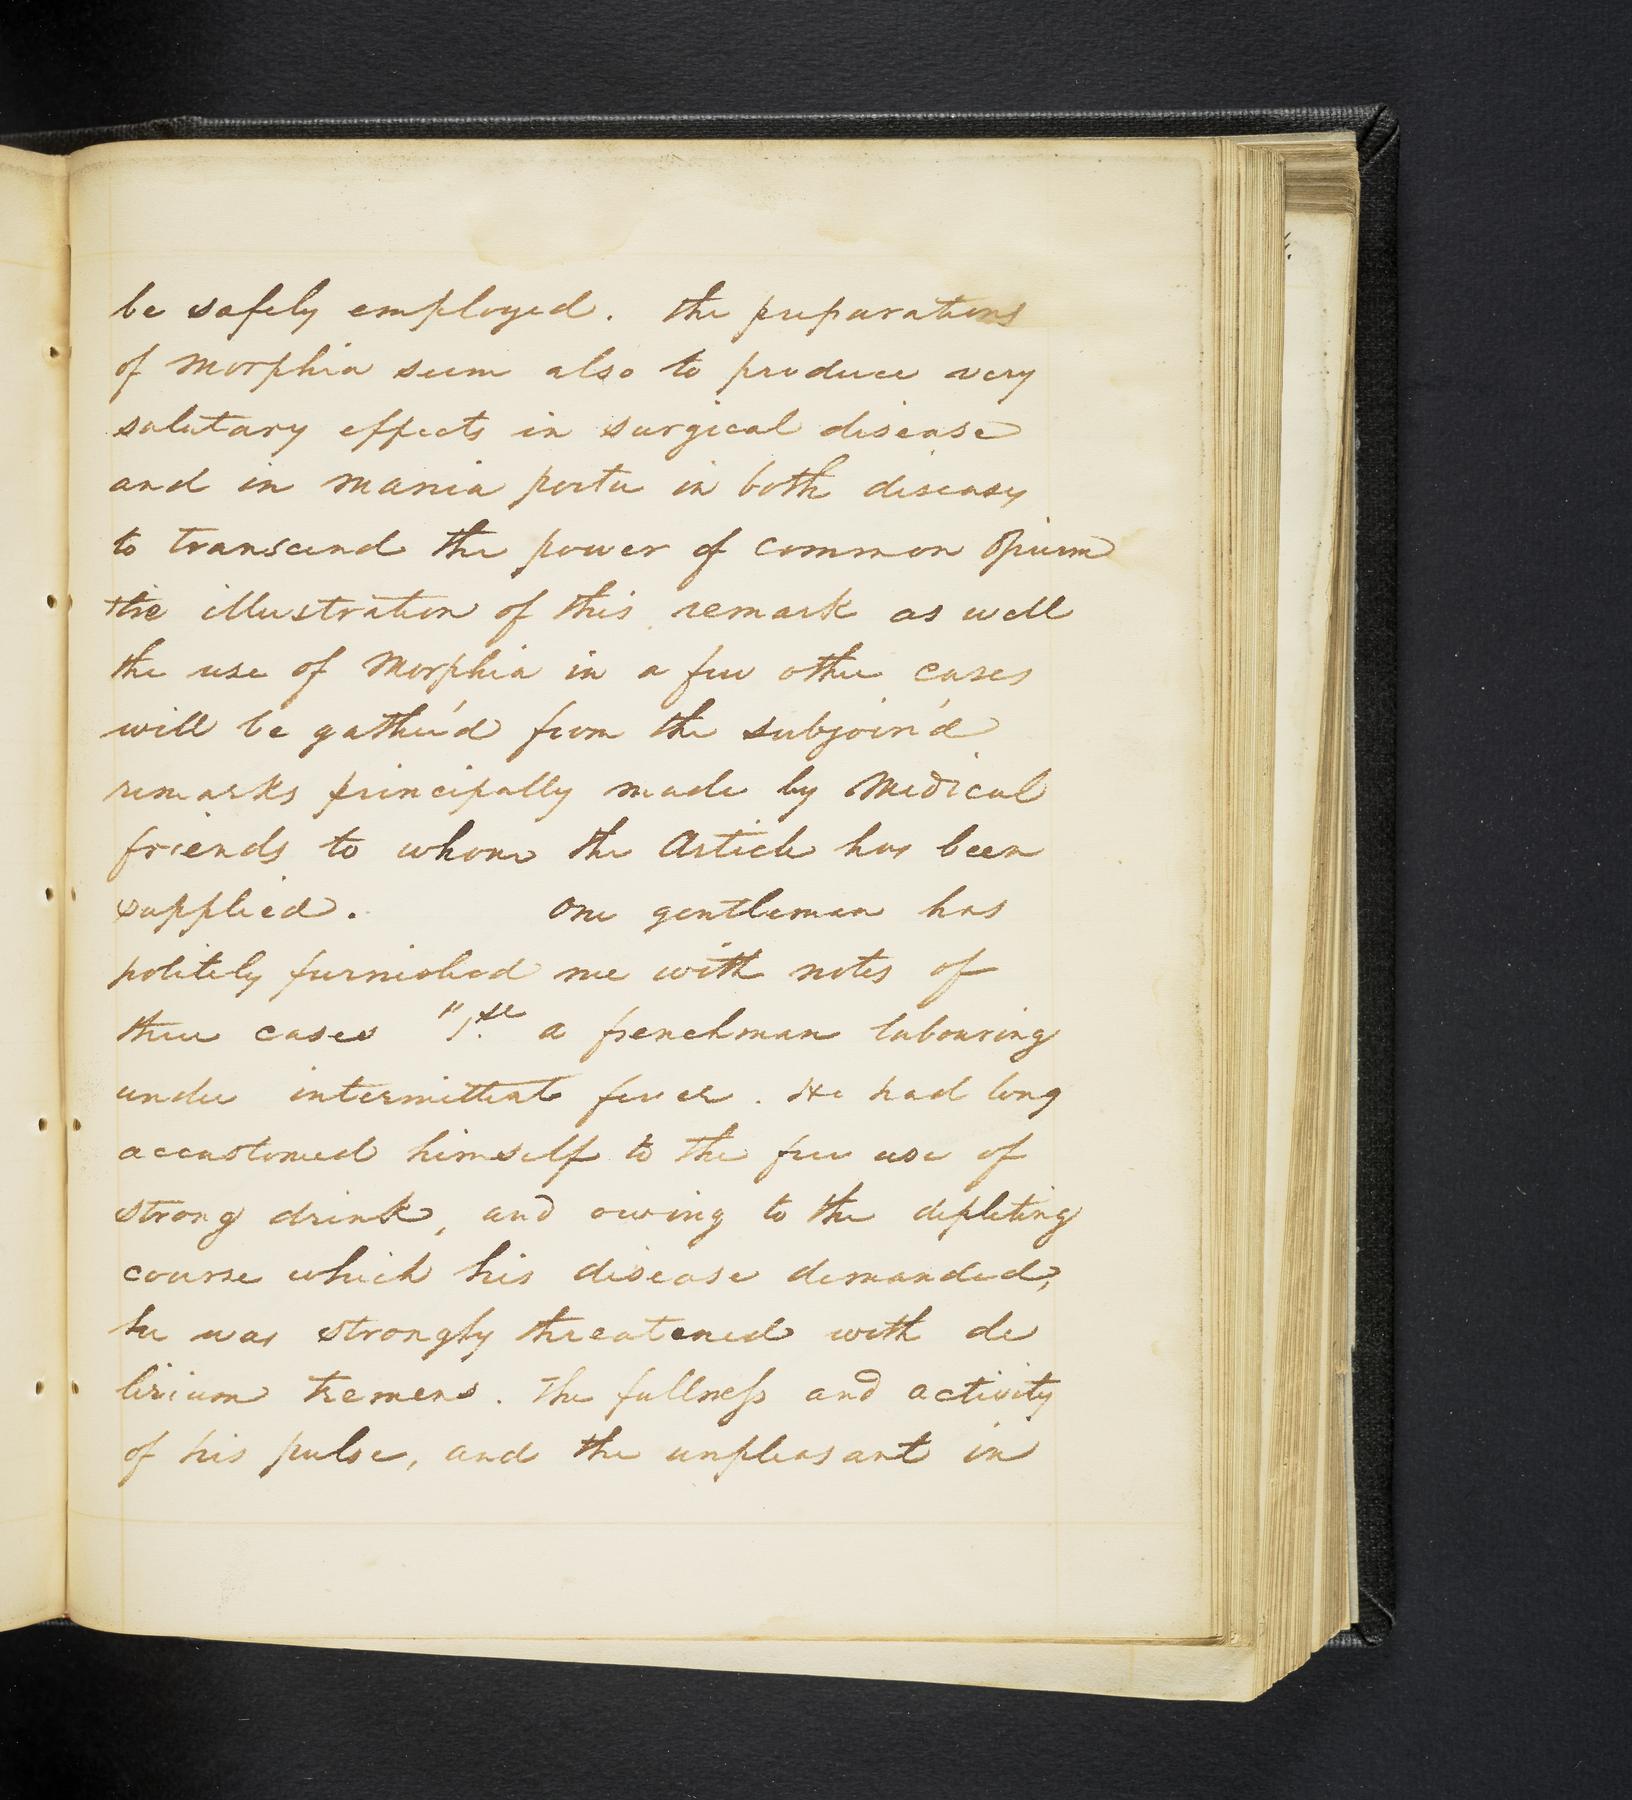 be safely employed. the preparations
of Morphia seem also to produce very
salutary effects in surgical disease
and in mania portu in both diseases
to transcend the power of common Opium
the illustration of this remark as well
the use of Morphia in a few other cases
will be gather'd from the subjoin'd
remarks principally made by Medical
friends to whom the Article has been
supplied. One gentleman has
politely furnished me with notes of
three cases "1.st a frenchman labouring
under intermittent fever. He had long
accustomed himself to the free use of
strong drink, and owing to the depleting
course which his disease demanded,
he was strongly threatened with de
lirium tremens. The fullness and activity
of his pulse, and the unpleasant in